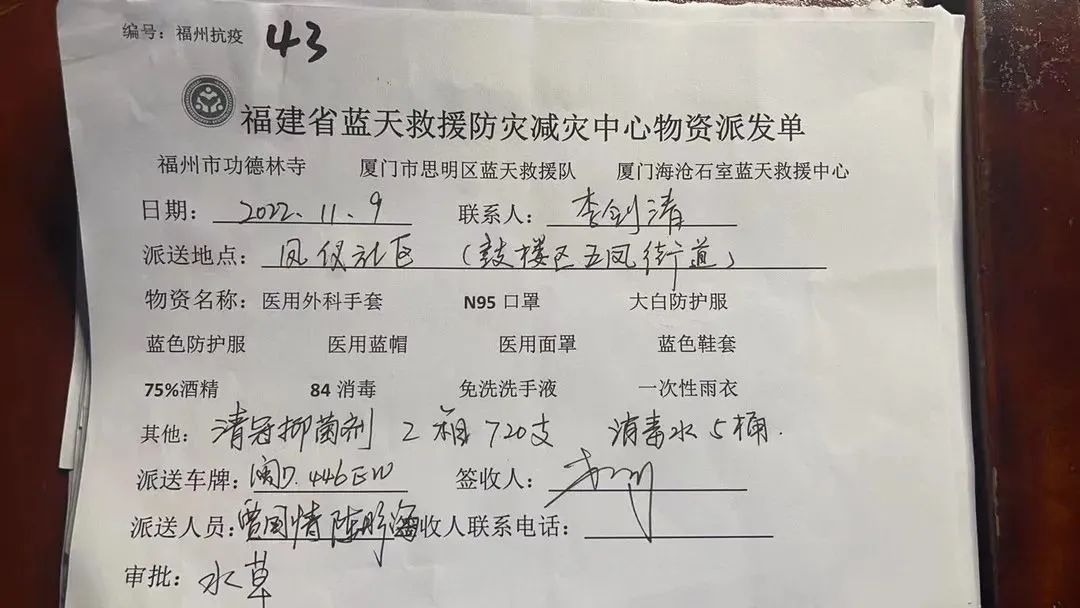 编号：福州抗疫 43
福建省蓝天救援防灾减灾中心物资派发单
福州市功德林寺 厦门市思明区蓝天救援队 厦门海沧石室蓝天救援中心
日期： 2022.11.9 联系人： 李剑清
派送地点： 凤仪社区 （鼓楼区五凤街道）
物资名称： 医用外科手套 N95 口罩 大白防护服
蓝色防护服 医用蓝帽 医用面罩 蓝色鞋套
75%酒精 84 消毒 免洗洗手液 一次性雨衣
其他： 清冠抑菌剂 2 箱 720支 消毒水 5桶.
派送车牌： 闽D.446EW 签收人：
派送人员： 曾国情 收人联系电话：
审批： 水草